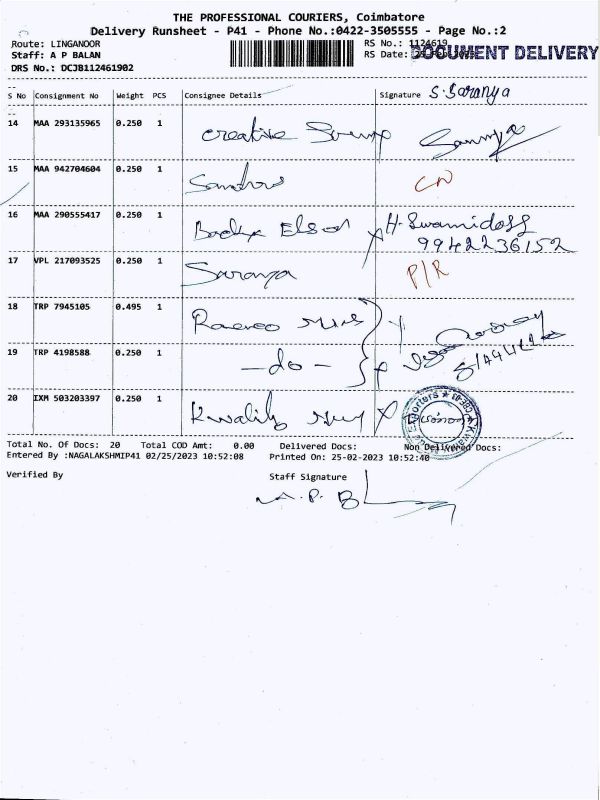 THE PROFESSIONAL COURIERS, Coimbatore
Delivery Runsheet - P41 - Phone No.:0422-3505555 - Page No.:2
Route: LINGANOOR
RS No.: 1124619
Staff: A P BALAN
RS Date:
DOCUMENT DELIVERY
DRS No.: DCJB112461902
S No Consignment No Weight PCS Consignee Details Signature S. Saranya
14 MAA 293135965 0.250 1 Creative
15 MAA 942704604 0.250 1
16 MAA 290555417 0.250 1 H. Swamidoss
9942236152
17 VPL 217093525 0.250 1 Saranya P/R
18 TRP 7945105 0.495 1
19 TRP 4198588 0.250 1 -do-
20 IXM 503203397 0.250 1 Kwality
Total No. Of Docs: 20 Total COD Amt: 0.00 Delivered Docs: Non Delivered Docs:
Entered By :NAGALAKSHMIP41 02/25/2023 10:52:08 Printed On: 25-02-2023 10:52:40
Verified By Staff Signature
A. P. B